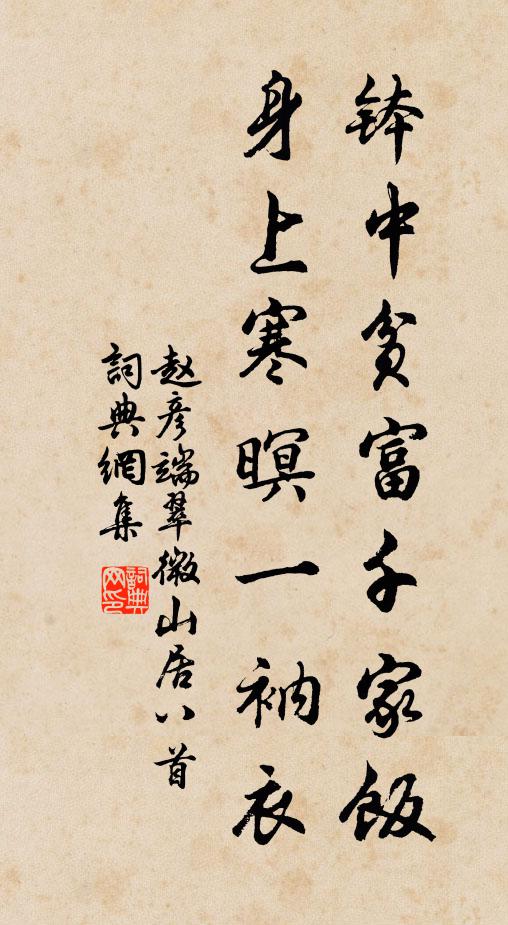 钵中贫富千家饭
身上寒暝一衲衣
赵彦端翠微山居八首
詞典網集
詞典
网印